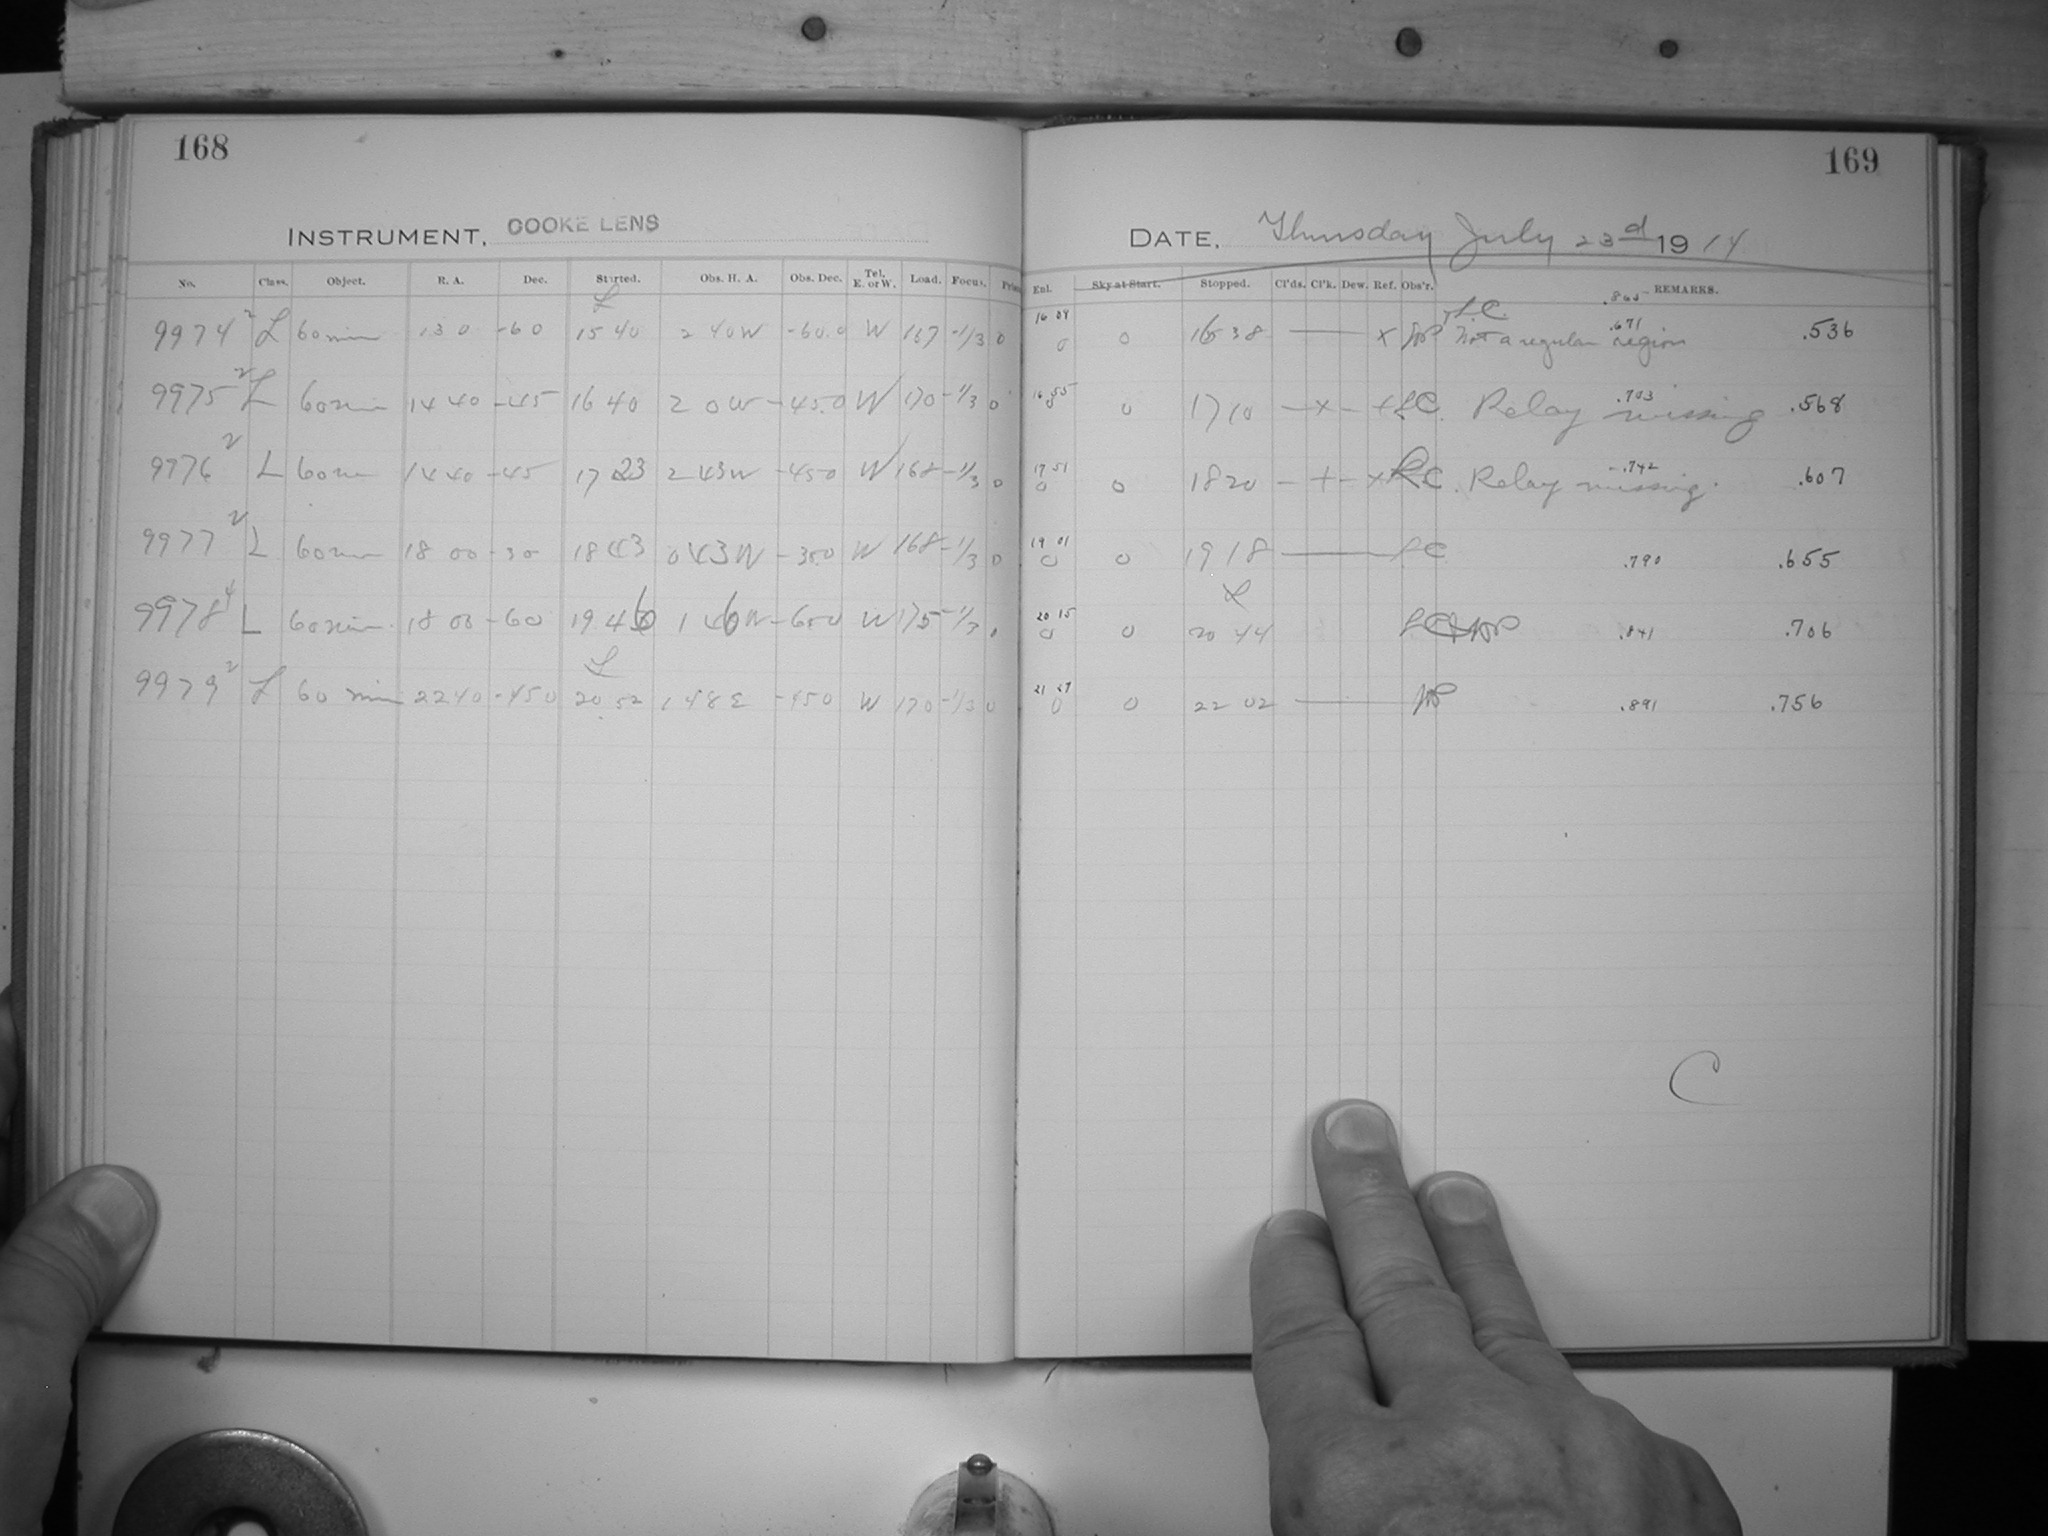 168
169
INSTRUMENT, COOKE LENS
DATE, Thursday July 23d 1914
No. Class. Object. R. A. Dec. Started. Obs. H. A. Obs. Dec. Tel. E. or W. Load. Focus. Enl. Sky at Start. Stopped. Cl'ds. Cl'k. Dew. Ref. Obs'r. REMARKS.
L
9974 2 L 60 min 13 0 -60 15 40 2 40 W -60.0 W 167 -1/3 0 16 09 0 0 16 38 — x Not a regular region .671 .536
9975 2 L 60 min 14 40 -45 16 40 2 0 W -45.0 W 170 -1/3 0 16 55 0 0 17 10 - x - + LC. Relay missing .703 .568
9976 2 L 60 m 14 40 -45 17 23 2 43 W -45.0 W 168 -1/3 0 17 51 0 0 18 20 - + - x LC. Relay missing. .742 .607
9977 2 L 60 min 18 00 -30 18 43 0 43 W -30.0 W 168 -1/3 0 19 01 0 0 19 18 — LC .790 .655
L
9978 4 L 60 min. 18 00 -60 19 46 1 46 W -60.0 W 175 -1/3 0 20 15 0 0 20 44 .841 .706
L
9979 2 L 60 min 22 40 -45 0 20 52 1 48 E -45 0 W 170 -1/3 0 21 27 0 0 22 02 — .891 .756
C